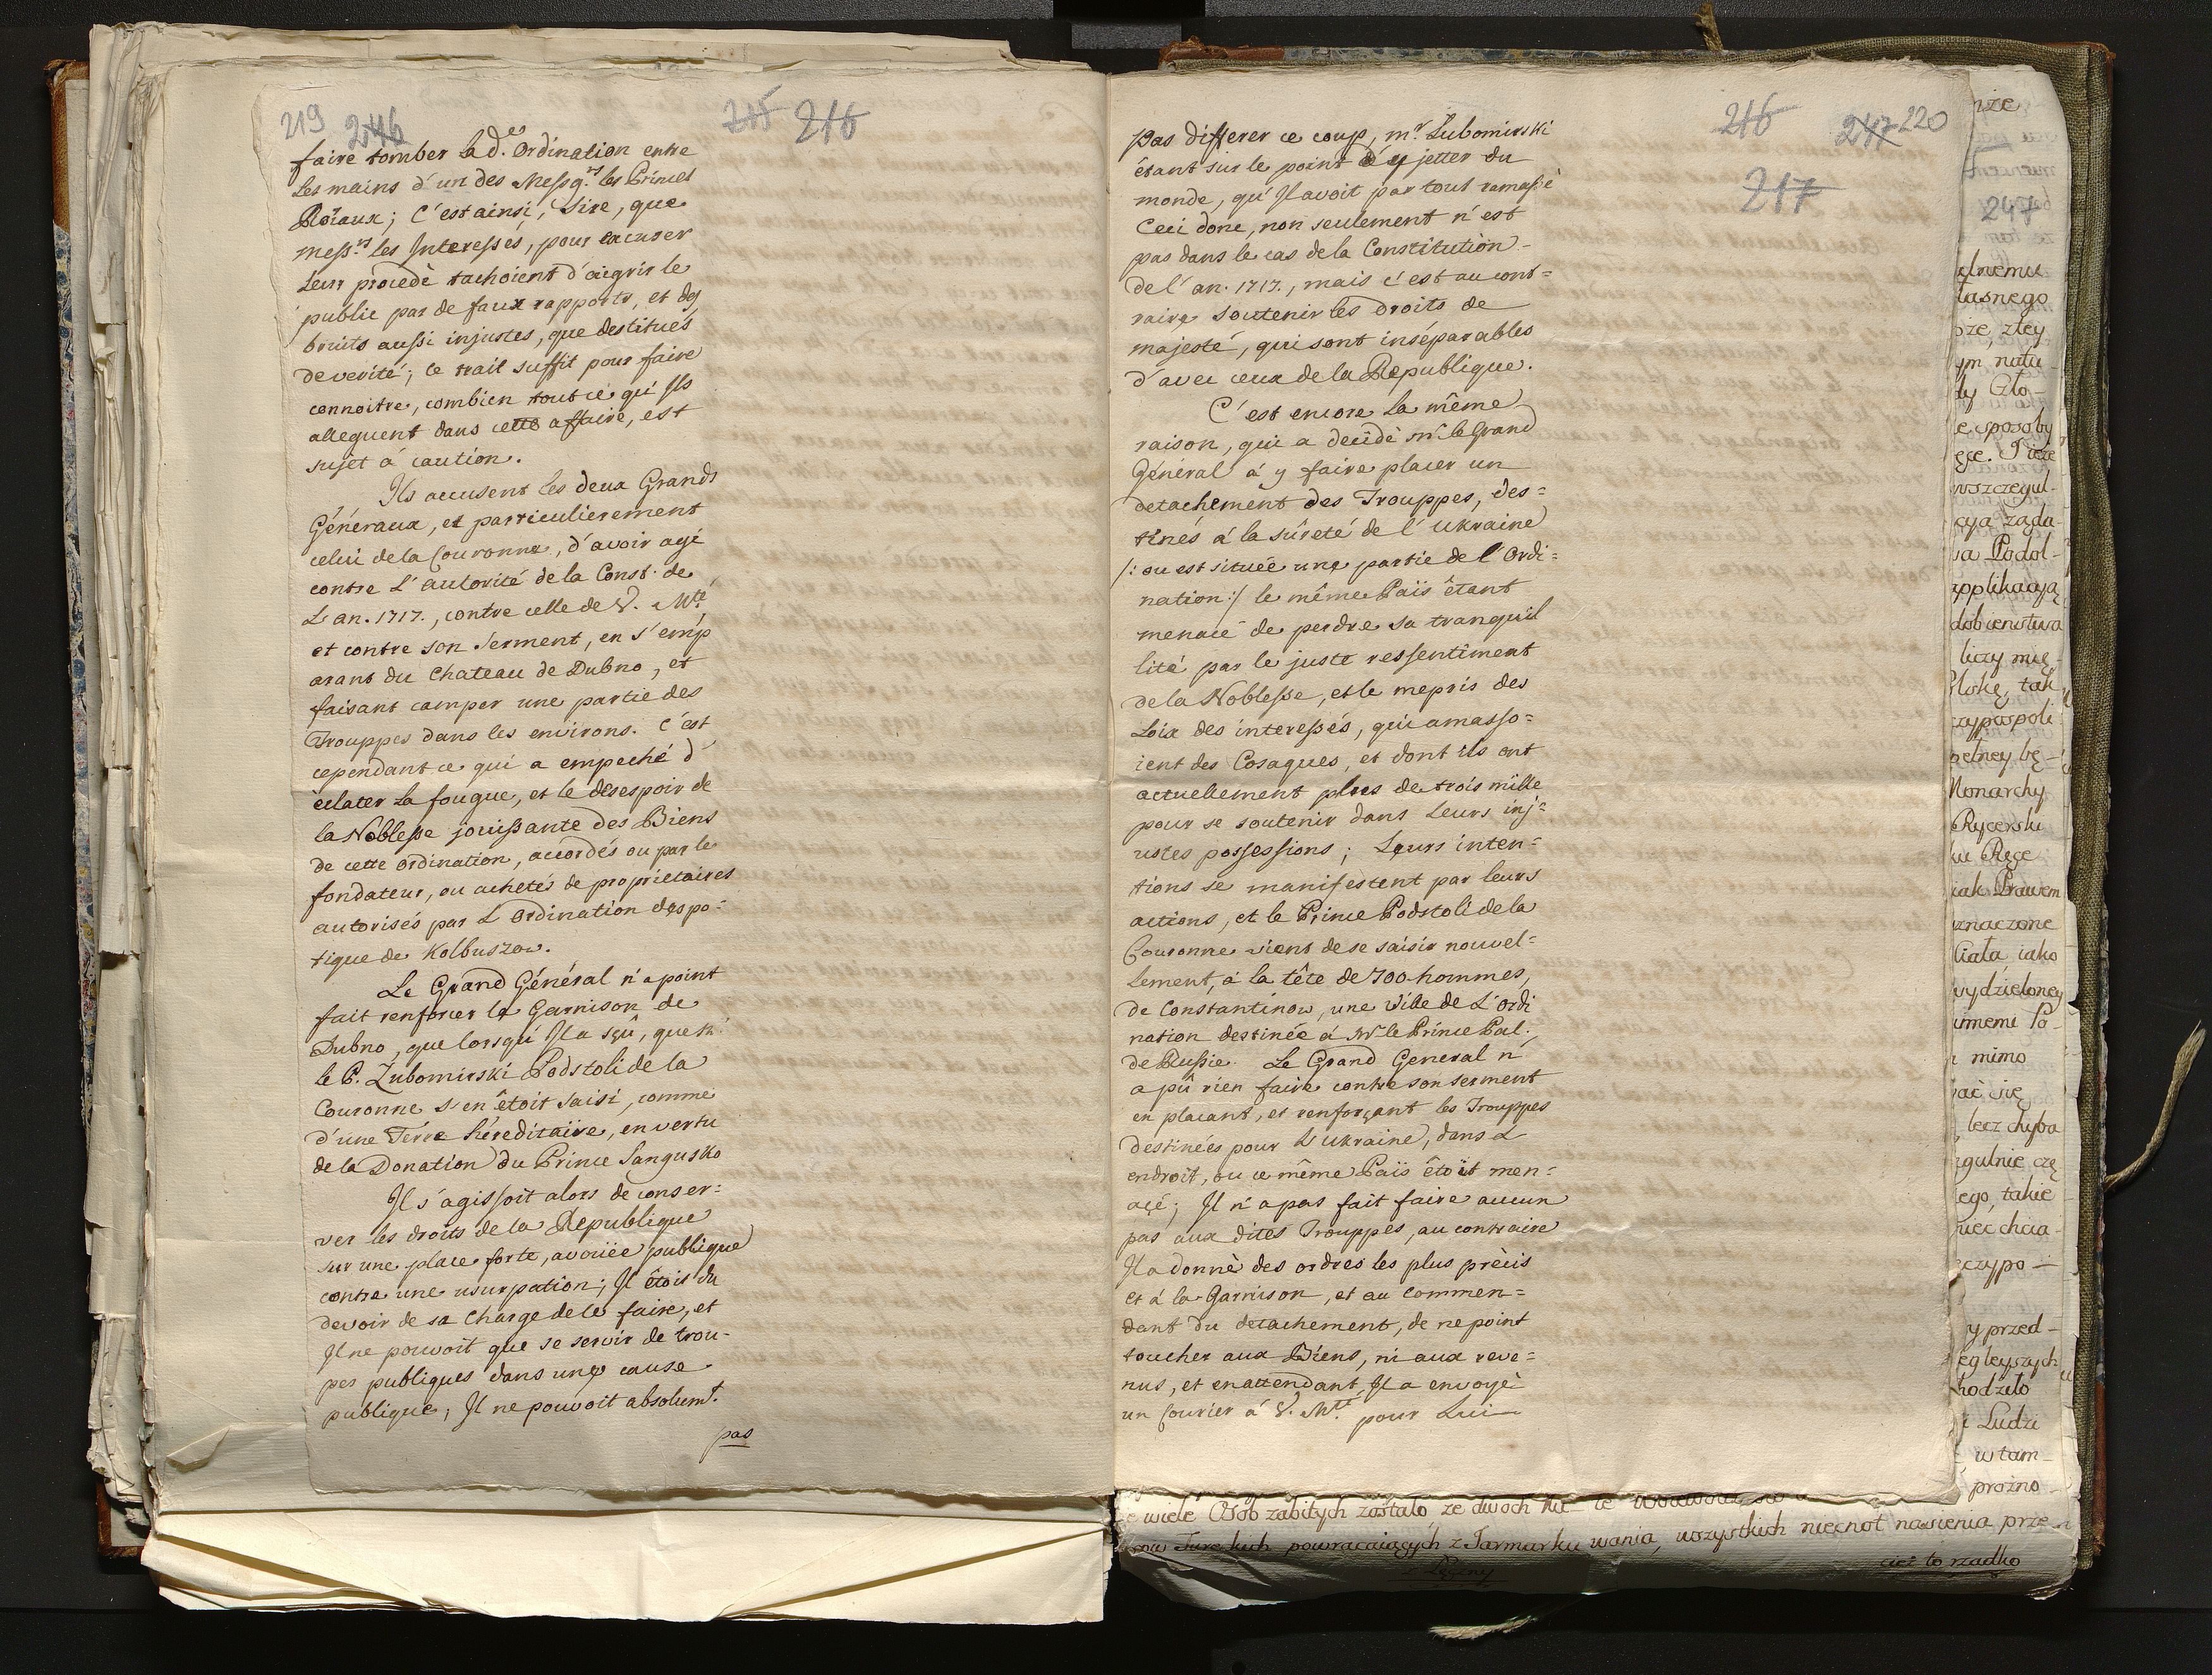 219 246 215 216
faire tomber la d.te Ordination entre
les mains d'un des Messg.rs les Princes
Roïaux; C'est ainsi, Sire, que
mess.rs les Interessés, pour excuser
leur procedè tachoient d'aigrir le
public par de faux rapports, et des
bruits aussi injustes, que destitués
de verité; ce trait suffit pour faire
connoitre, combien tout ce qu'Ils
alleguent dans cette affaire, est
sujet á caution.
Ils accusent les deux Grands
Géneraux, et particulierement
celui de la Couronne, d'avoir agi
contre L'autorité de la Const. de
L'an. 1717., contre celle de V. Mté,
et contre son Serment, en s'emp
arant du Chateau de Dubno, et
faisant camper une partie des
Trouppes dans les environs. C'est
cependant ce qui a empeché d'
éclater la fougue, et le desespoir de
la Noblesse jouissante des Biens
de cette ordination, accordés ou par le
fondateur, ou achetés de proprietaires
autorisés par L'Ordination despo-
tique de Kolbuszow.
Le Grand Général n'a point
fait renforcer la Garnison de
Dubno, que lorsqu'Il a sçû, que
le P. Lubomirski Podstoli de la
Couronne s'en étoit saisi, comme
d'une Térre héreditaire, en vertu
de la Donation du Prince Sangusko
Il s'agissoit alors de conser-
ver les droits de la Republique
sur une place forte, avoüée publique
contre une usurpation; Il étois du
devoir de sa Charge de le faire, et
Il ne pouvoit que se servir de trou-
pes publiques dans une cause
publique; Il ne pouvoit absolum.t
pas
216 247 220
217
pas differer ce coup, m.r Lubomirski
étant sur le point d'y jetter du
monde, qu'Il avoit par tout ramassé
Ceci donc, non seulement n'est
pas dans le cas de la Constitution
de l'an. 1717., mais c'est au cont=
raire soutenir les droits de
majesté, qui sont inséparables
d'avec ceux de la Republique.
C'est encore la même
raison, qui a decidè mr le Grand
Général á y faire placer un
detachement des Trouppes, des=
tinés á la sûreté de l'Ukraine
/: ou est située une partie de l'Ordi=
nation:/ le même Païs étant
menacé de perdre sa tranquil
lité par le juste ressentiment
de la Noblesse, et le mepris des
Loix des interessés, qui amasso=
ient des Cosaques, et dont ils ont
actuellement plus de trois mille
pour se soutenir dans Leurs inj=
ustes possessions; Leurs inten=
tions se manifestent par leurs
actions, et le Prince Podstoli de la
Couronne vient de se saisir nouvel=
lement, á la tête de 700 hommes,
de Constantinow, une Ville de L'Ordi
nation destinée á Mr le Prince Pal.
de Russie. Le Grand General n'
a pû rien faire contre son serment
en placant, et renforçant les Trouppes
destinées pour L'Ukraine, dans L'
endroit, ou ce même Païs étoit men=
açé; Il n'a pas fait faire aucun
pas aux dites Trouppes, au contraire
Il a donné des ordres les plus précis
et á la Garnison, et au Commen=
dant du detachement, de ne point
toucher aux Biens, ni aux reve=
nus, et en attendant, Il a envoyé
un Courier á V. Mté. pour Lui
247
wiele Osób zabitych zostało, ze dwoch
powracaiących z Jarmarku wania, wszystkich niecnot nasienia prze
cież to rzadko
tasnego
natu-
sposoby
Podol-
tak
Monarchy
Prawem
znaczone
Ciała iako
mimo
lecz chyba
takie
y przed-
Ludzi
w tam-
prożno